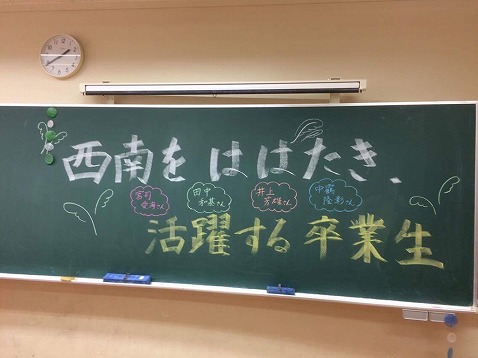 西南をはばたき、
宮司愛海さん
田中和基さん
井上芳雄さん
中鶴隆彰さん
活躍する卒業生